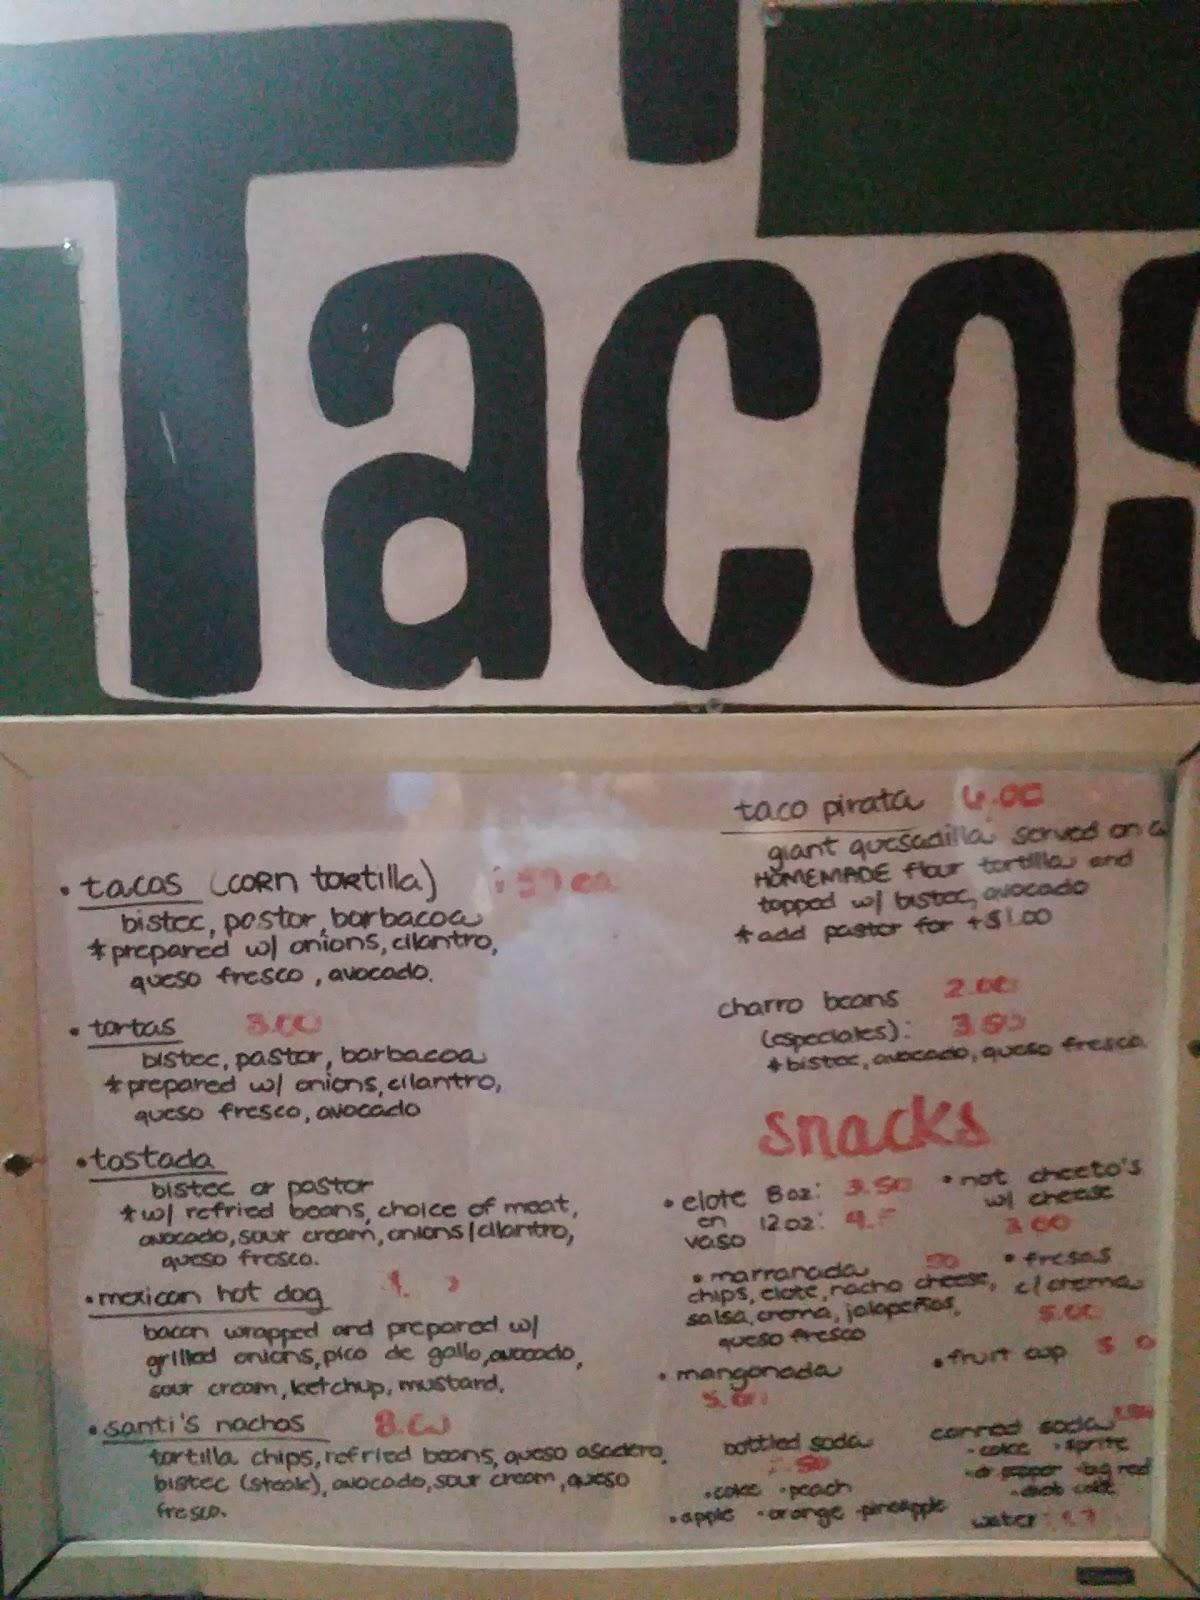 Tacos
• tacos (CORN TORTILLA) ea
bistec, pastor, barbacoa
*prepared w/ onions, cilantro,
queso fresco, avocado.
• tortas
bistec, pastor, barbacoa
*prepared w/ onions, cilantro,
queso fresco, avocado
• tostada
bistec or pastor
*w/ refried beans, choice of meat,
avocado, sour cream, onions/cilantro,
queso fresco.
• mexican hot dog
bacon wrapped and prepared w/
grilled onions, pico de gallo, avocado,
sour cream, ketchup, mustard.
• santi's nachos
tortilla chips, refried beans, queso asadero,
bistec (steak), avocado, sour cream, queso
fresco.
taco pirata
giant quesadilla served on a
HOMEMADE flour tortilla and
topped w/ bistec, avocado
*add pastor for +$1.00
charro beans 2.00
(especiales): 3.50
*bistec, avocado, queso fresco
snacks
• elote 8oz: 3.50
en 12oz:
vaso
• hot cheeto's
w/ cheese
3.00
• marranada
chips, elote, nacho cheese,
salsa, crema, jalapeños,
queso fresco
• fresas
c/ crema
5.00
• mangonada
5.00
• fruit cup
bottled soda
• coke • peach
• apple • orange • pineapple
canned soda
• coke • sprite
• dr pepper • big red
• diet coke
water: